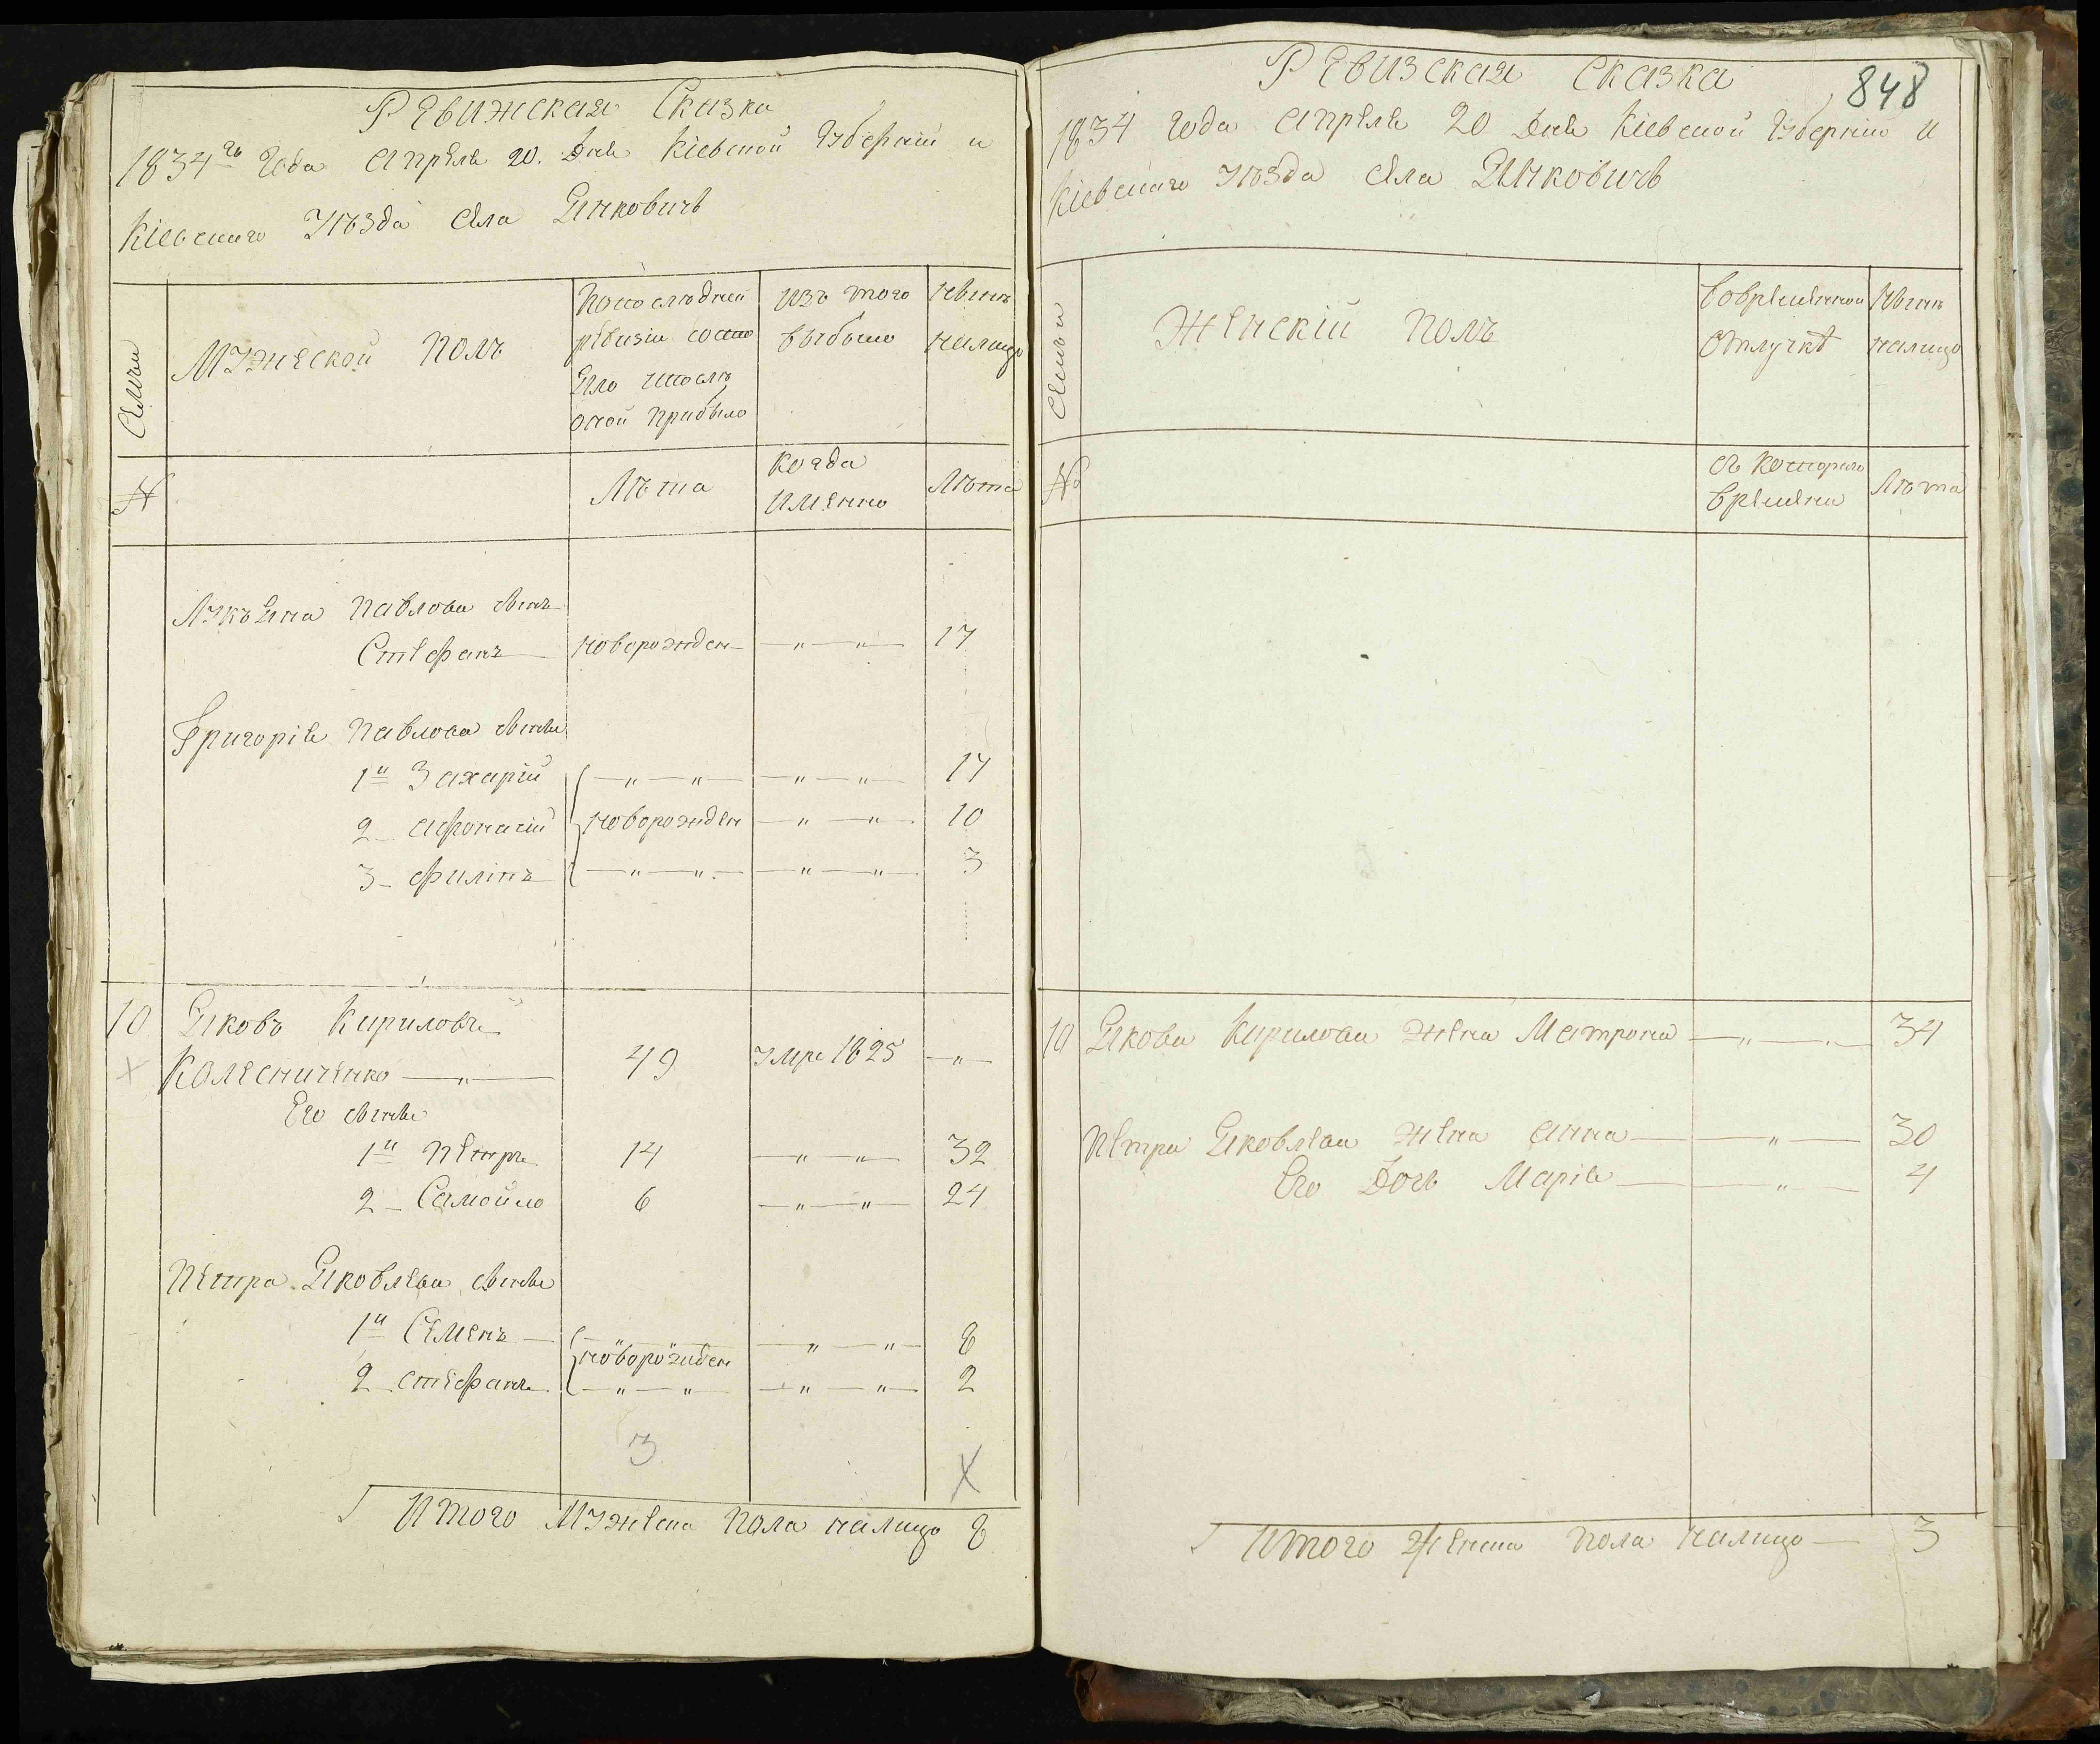 Ревижская Сказка
1834го Года Апреля 20. Дня Кіевской Губерніи и
Кіевскаго Уѣзда Села Янковичь
Семьи
Мужеской Полъ
Попоследней
ревизіи состо
яло ипослѣ
оной прибыло
изъ того
выбыло
Нынѣ
налицо
№
Лѣта
Когда
имянно
Лѣта
Лукьяна Павлова сынъ
Стефанъ новорожден — " — " — 17
Григорія Павлова сынья
1й Захарій — " — " — — " — " — 17
2 Афонасій новорожден — " — " — 10
3 Филипъ — " — " — — " — " — 3
10 Яковъ Кириловъ
Колесниченко — " — 49 умре 1825 — " —
Его сынья
1й Петръ 14 — " — " — 32
2 Самойло 6 — " — " — 24
Петра Яковлева сынья
1й Семенъ — " — " — — " — " — 8
новорожден
2 Стефанъ — " — " — — " — " — 2
3
Итого Мужеска пола налицо 8
848
Ревизская Сказка
1834 Года Апреля 20 Дня Кіевской Губерніи и
Кіевскаго Уѣзда Села Янковичь
Семьи
Женскій Полъ
Вовременной
Отлучкѣ
Нынѣ
налицо
№
съ котораго
времена
Лѣта
10 Якова Кирилова жена Матрона — " — 34
Петра Яковлева жена Анна — " — 30
Его Дочь Марія — " — 4
Итого Женска пола налицо — 3